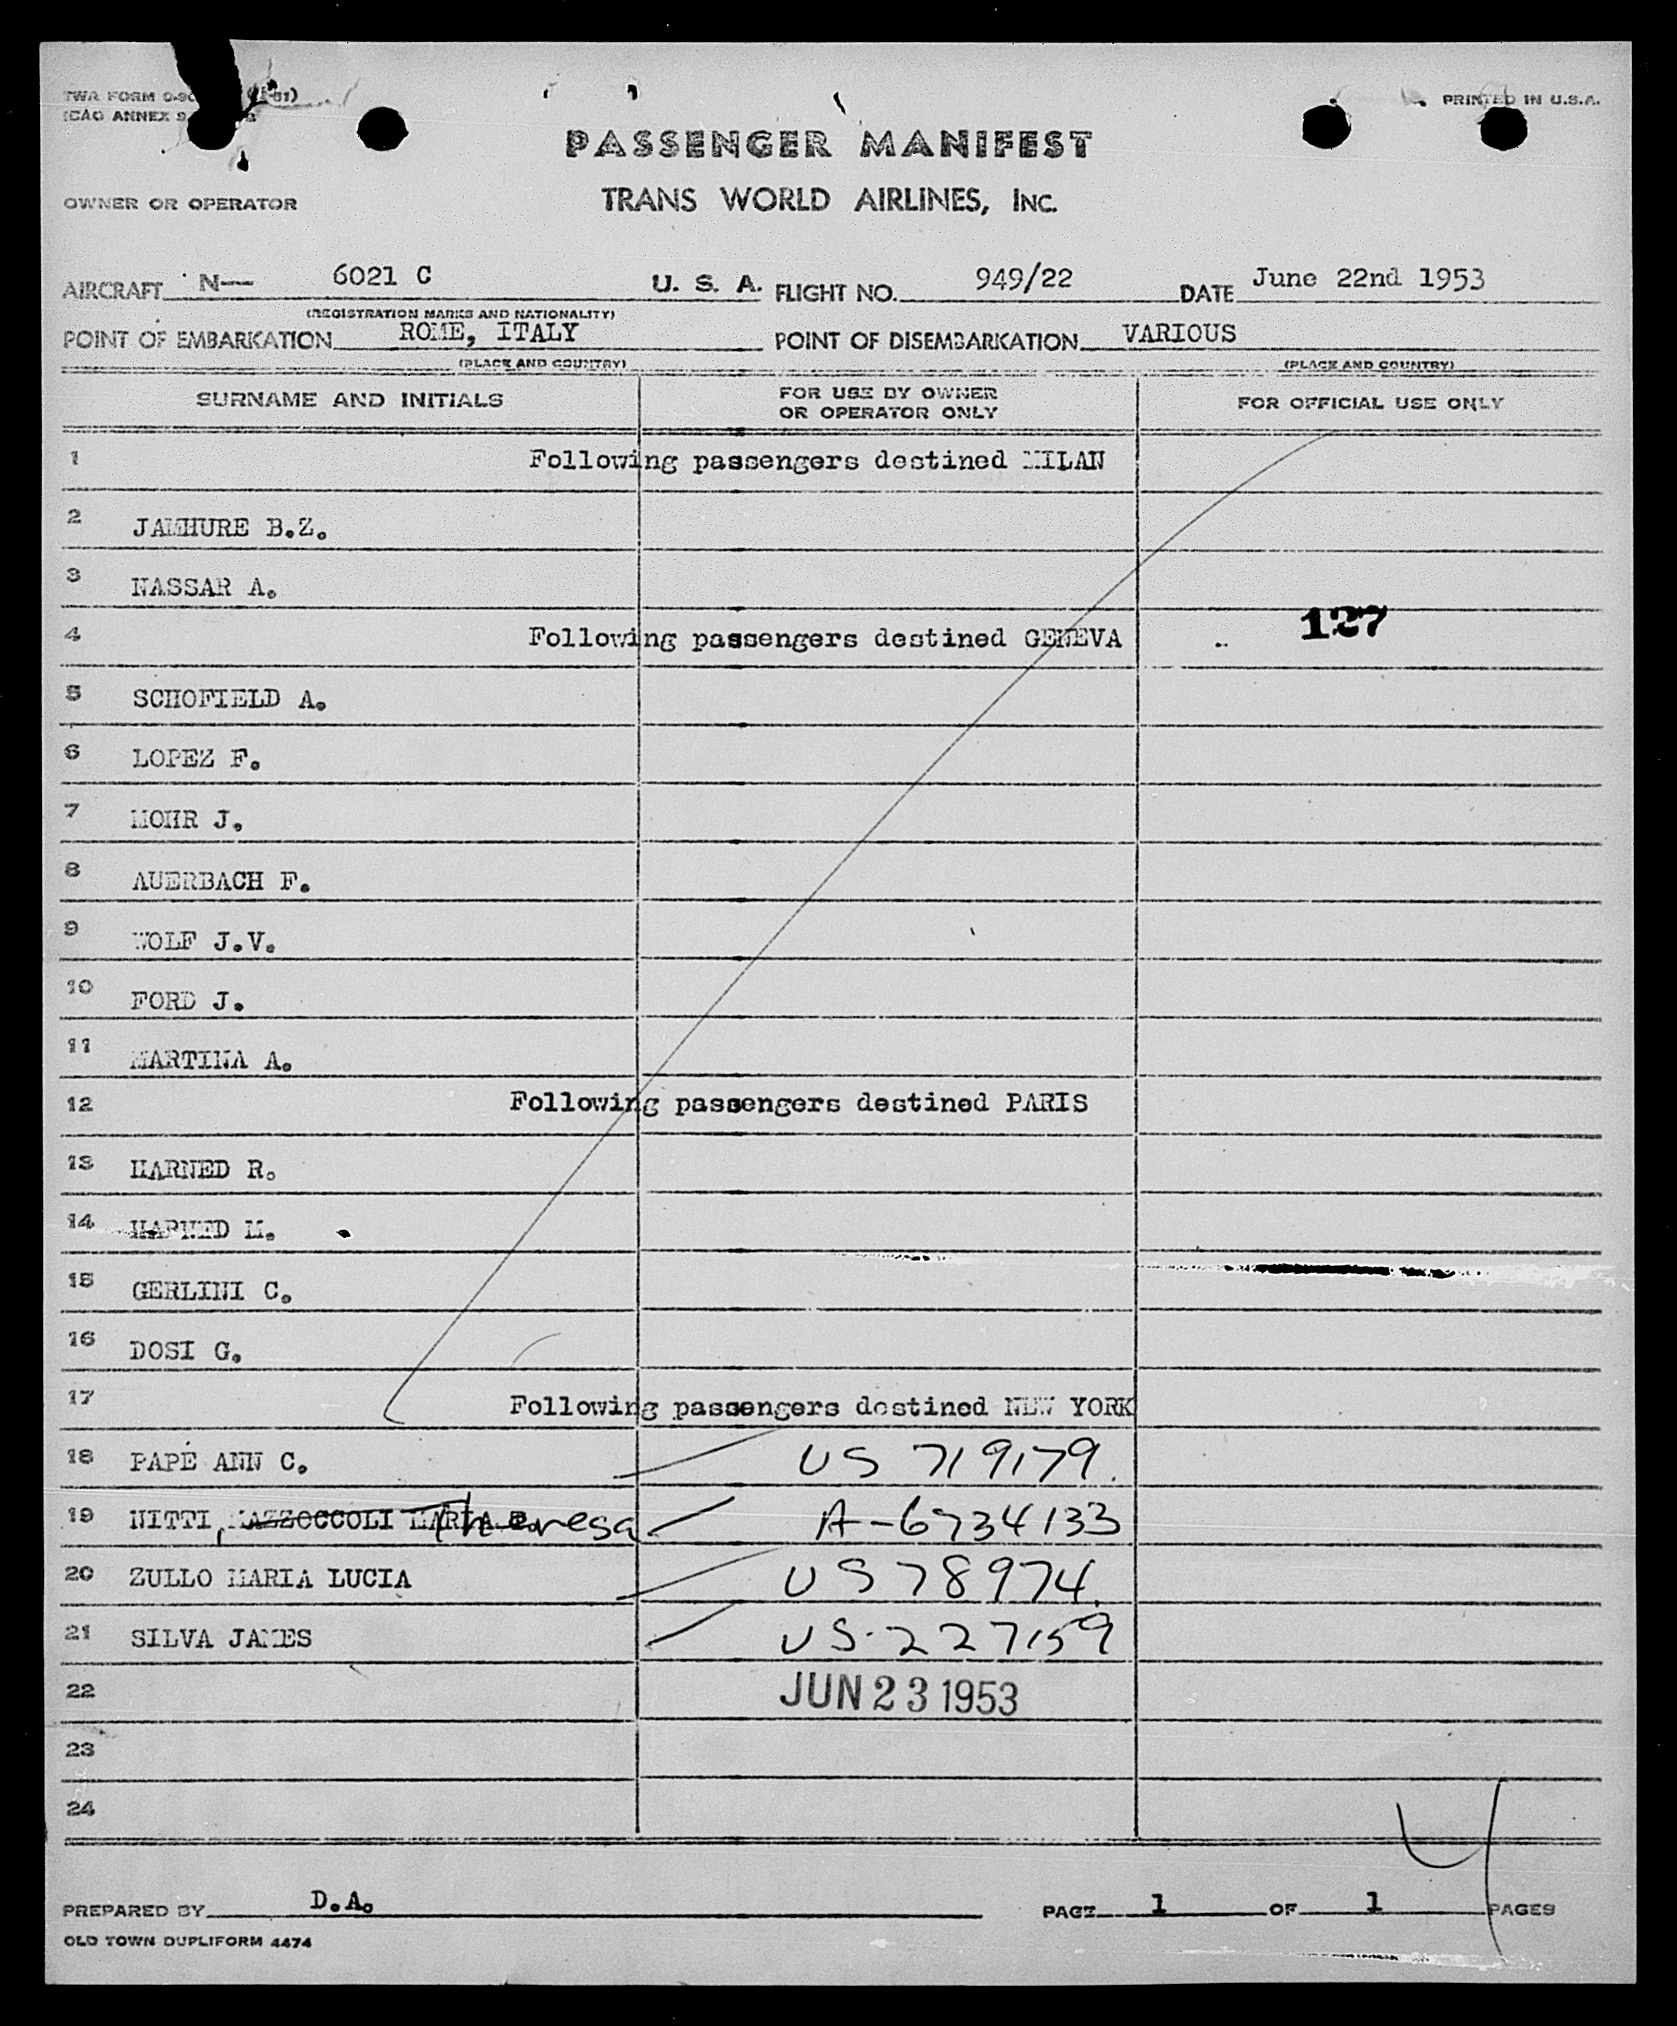 TWA FORM
PRINTED IN U.S.A.
ICAO ANNEX 9
PASSENGER MANIFEST
OWNER OR OPERATOR
TRANS WORLD AIRLINES, INC.
AIRCRAFT N— 6021 C U. S. A. FLIGHT NO. 949/22 DATE June 22nd 1953
(REGISTRATION MARKS AND NATIONALITY)
POINT OF EMBARKATION ROME, ITALY POINT OF DISEMBARKATION VARIOUS
(PLACE AND COUNTRY) (PLACE AND COUNTRY)
SURNAME AND INITIALS FOR USE BY OWNER OR OPERATOR ONLY FOR OFFICIAL USE ONLY
1 Following passengers destined MILAN
2 JAMHURE B.Z.
3 NASSAR A.
127
4 Following passengers destined GENEVA
5 SCHOFIELD A.
6 LOPEZ F.
7 MOHR J.
8 AUERBACH F.
9 WOLF J.V.
10 FORD J.
11 MARTINA A.
12 Following passengers destined PARIS
13 HARNED R.
14 HARNED M.
15 GERLINI C.
16 DOSI G.
17 Following passengers destined NEW YORK
18 PAPE ANN C. US 719179.
19 NITTI, MAZZOCCOLI MARIA Theresa A-6734133
20 ZULLO MARIA LUCIA US 78974.
21 SILVA JAMES US. 227159
22 JUN 23 1953
23
24
4
PREPARED BY D.A. PAGE 1 OF 1 PAGES
OLD TOWN DUPLIFORM 4474